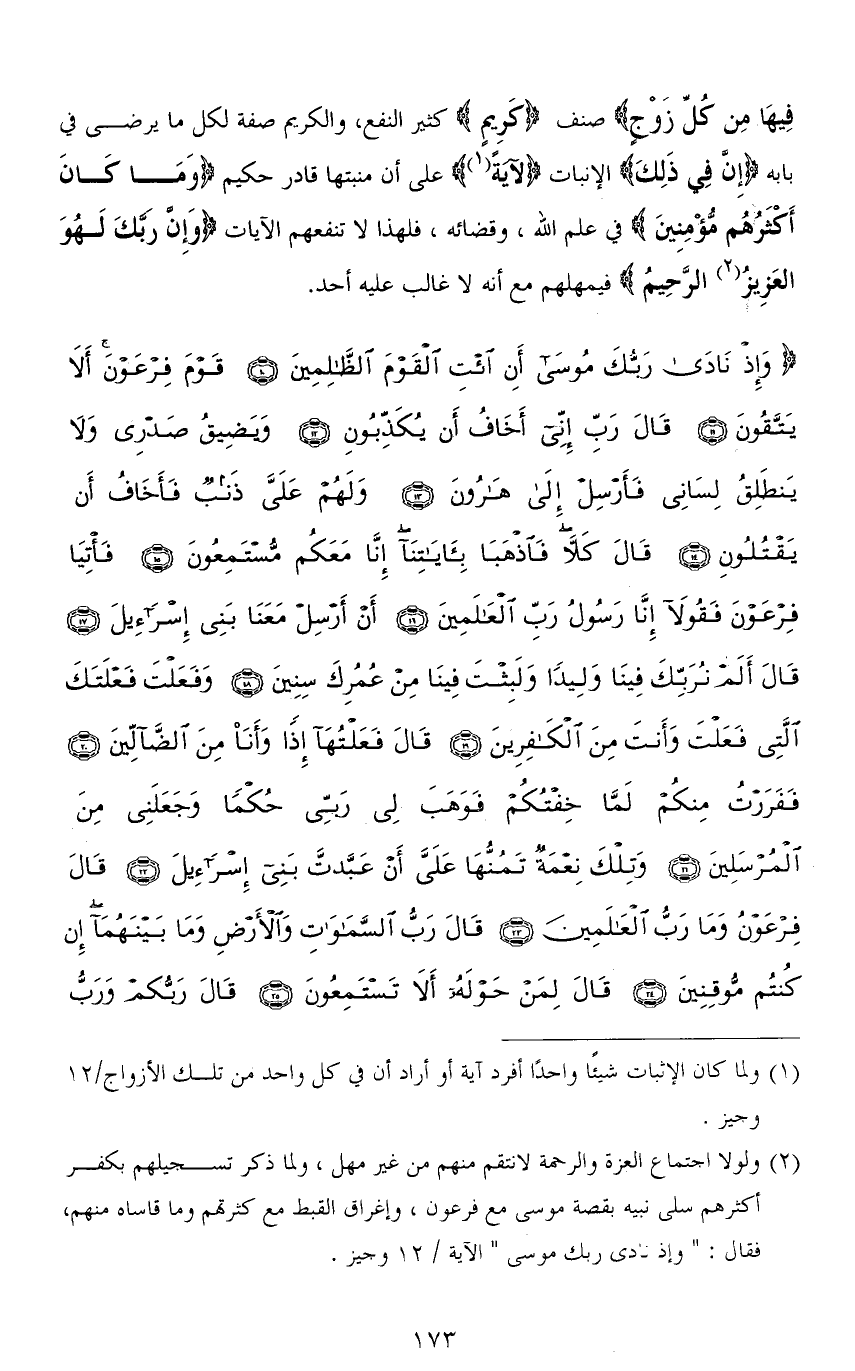 فِيهَا مِن كُلِّ زَوْجٍ﴾ صنف ﴿كَرِيمٍ﴾ كثير النفع، والكريم صفة لكل ما يرضى في
بابه ﴿إِنَّ فِي ذَلِكَ﴾ الإنبات ﴿لآيَةً(١)﴾ على أن منبتها قادر حكيم ﴿وَمَا كَانَ
أَكْثَرُهُم مُّؤْمِنِينَ﴾ في علم الله ، وقضائه ، فلهذا لا تنفعهم الآيات ﴿وَإِنَّ رَبَّكَ لَهُوَ
العَزِيزُ(٢) الرَّحِيمُ﴾ فيمهلهم مع أنه لا غالب عليه أحد.
﴿ وَإِذْ نَادَىٰ رَبُّكَ مُوسَىٰٓ أَنِ ٱئْتِ ٱلْقَوْمَ ٱلظَّٰلِمِينَ ۝١٠ قَوْمَ فِرْعَوْنَ ۚ أَلَا
يَتَّقُونَ ۝١١ قَالَ رَبِّ إِنِّىٓ أَخَافُ أَن يُكَذِّبُونِ ۝١٢ وَيَضِيقُ صَدْرِى وَلَا
يَنطَلِقُ لِسَانِى فَأَرْسِلْ إِلَىٰ هَٰرُونَ ۝١٣ وَلَهُمْ عَلَىَّ ذَنۢبٌ فَأَخَافُ أَن
يَقْتُلُونِ ۝١٤ قَالَ كَلَّا ۖ فَٱذْهَبَا بِـَٔايَٰتِنَآ ۖ إِنَّا مَعَكُم مُّسْتَمِعُونَ ۝١٥ فَأْتِيَا
فِرْعَوْنَ فَقُولَآ إِنَّا رَسُولُ رَبِّ ٱلْعَٰلَمِينَ ۝١٦ أَنْ أَرْسِلْ مَعَنَا بَنِىٓ إِسْرَٰٓءِيلَ ۝١٧
قَالَ أَلَمْ نُرَبِّكَ فِينَا وَلِيدًا وَلَبِثْتَ فِينَا مِنْ عُمُرِكَ سِنِينَ ۝١٨ وَفَعَلْتَ فَعْلَتَكَ
ٱلَّتِى فَعَلْتَ وَأَنتَ مِنَ ٱلْكَٰفِرِينَ ۝١٩ قَالَ فَعَلْتُهَآ إِذًا وَأَنَا۠ مِنَ ٱلضَّآلِّينَ ۝٢٠
فَفَرَرْتُ مِنكُمْ لَمَّا خِفْتُكُمْ فَوَهَبَ لِى رَبِّى حُكْمًا وَجَعَلَنِى مِنَ
ٱلْمُرْسَلِينَ ۝٢١ وَتِلْكَ نِعْمَةٌ تَمُنُّهَا عَلَىَّ أَنْ عَبَّدتَّ بَنِىٓ إِسْرَٰٓءِيلَ ۝٢٢ قَالَ
فِرْعَوْنُ وَمَا رَبُّ ٱلْعَٰلَمِينَ ۝٢٣ قَالَ رَبُّ ٱلسَّمَٰوَٰتِ وَٱلْأَرْضِ وَمَا بَيْنَهُمَآ ۖ إِن
كُنتُم مُّوقِنِينَ ۝٢٤ قَالَ لِمَنْ حَوْلَهُۥٓ أَلَا تَسْتَمِعُونَ ۝٢٥ قَالَ رَبُّكُمْ وَرَبُّ
(١) ولما كان الإثبات شيئًا واحدًا أفرد آية أو أراد أن في كل واحد من تلك الأزواج/١٢
وجيز .
(٢) ولولا اجتماع العزة والرحمة لانتقم منهم من غير مهل ، ولما ذكر تسجيلهم بكفر
أكثرهم سلى نبيه بقصة موسى مع فرعون ، وإغراق القبط مع كثرتهم وما قاساه منهم،
فقال : " وإذ نادى ربك موسى " الآية / ١٢ وجيز .
١٧٣